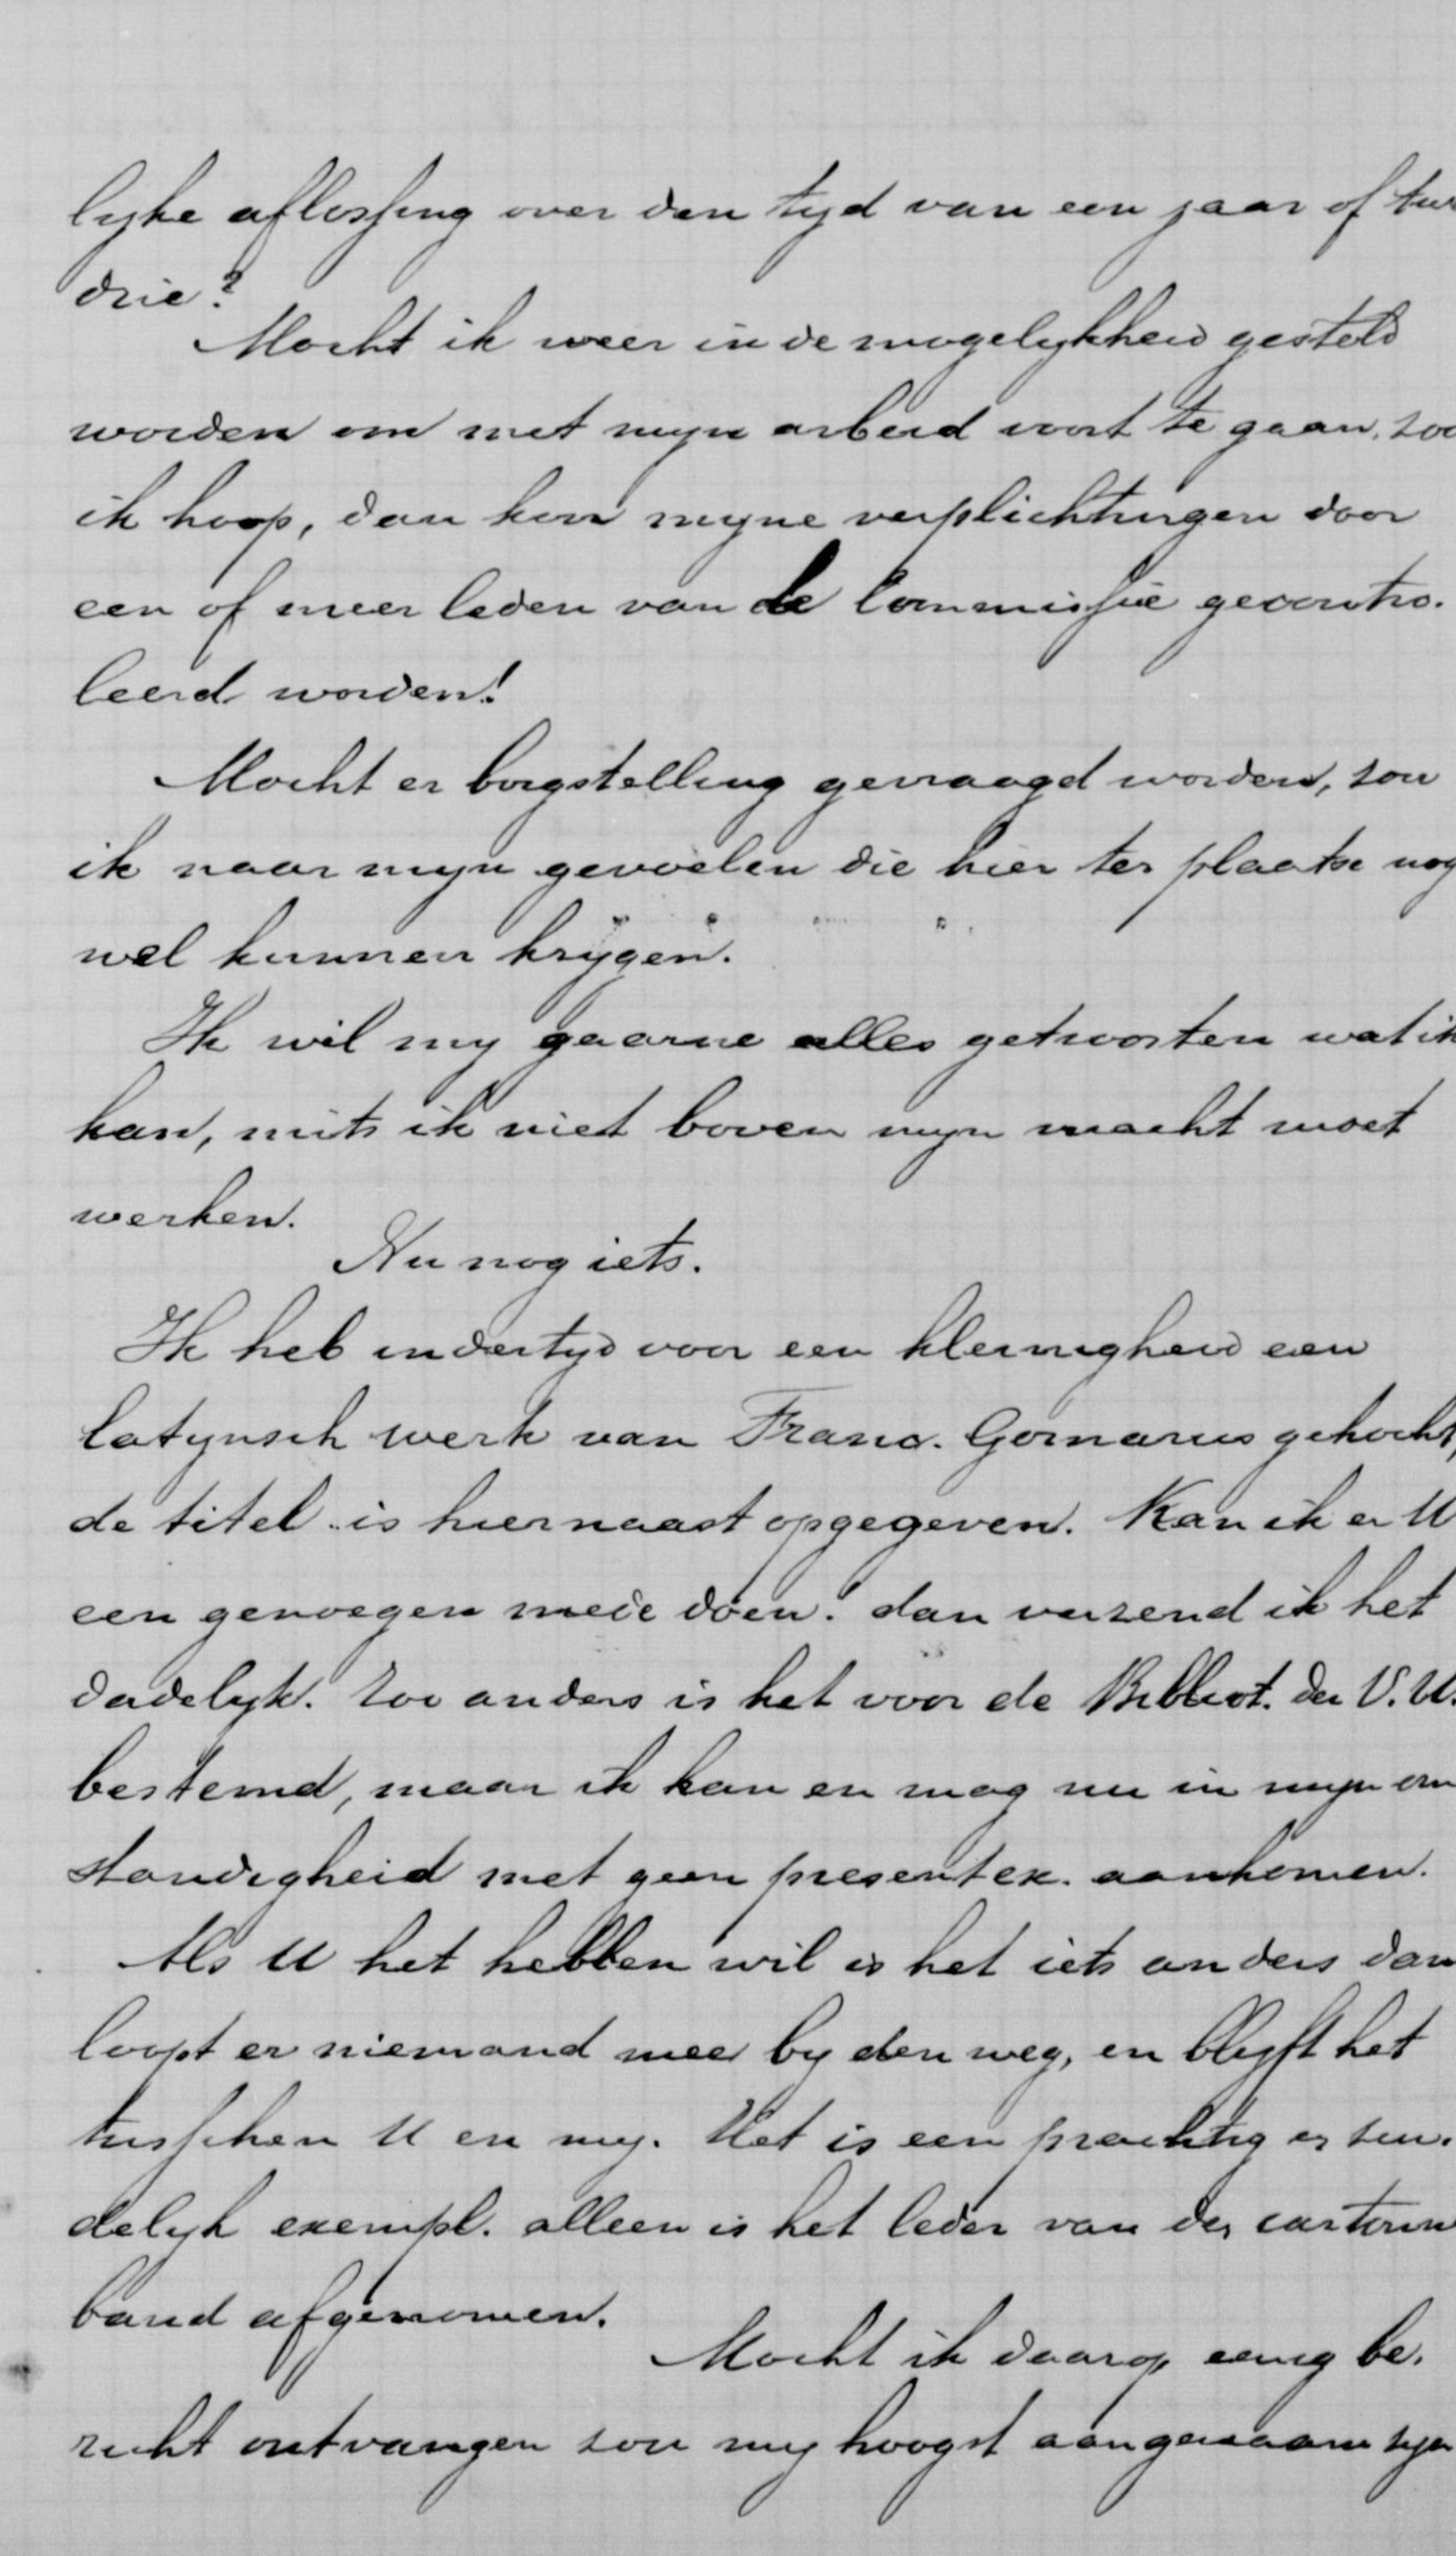 lyke aflossing over den tyd van een jaar of twee
drie?
Mocht ik weer in de mogelykheid gesteld
worden om met myn arbeid voort te gaan, zoo
ik hoop, dan kon myne verplichtingen door
een of meer leden van de Commissie gecontro-
leerd worden!
Mocht er borgstelling gevraagd worden, zou
ik naar myn gevoelen die hier ter plaatse nog
wel kunnen krygen.
Ik wil my gaarne alles getroosten wat ik
kan, mits ik niet boven myn macht moet
werken.
Nu nog iets.
Ik heb indertyd voor een kleinigheid een
latynsch werk van Franc. Gomarus gekocht,
de titel is hiernaast opgegeven. Kan ik er U
een genoegen mede doen! dan verzend ik het
dadelyk. Zoo anders is het voor de Bibliot. der V.U.
bestemd, maar ik kan en mag nu in myn om
standigheid met geen present ex. aankomen.
Als U het hebben wil is het iets anders dan
loopt er niemand mee by den weg, en blyft het
tusschen U en my. Het is een prachtig er zin-
delyk exempl. alleen is het leder van der cartonn
band afgenomen.
Mocht ik daarop eenig be-
richt ontvangen zou my hoogst aangenaam zyn